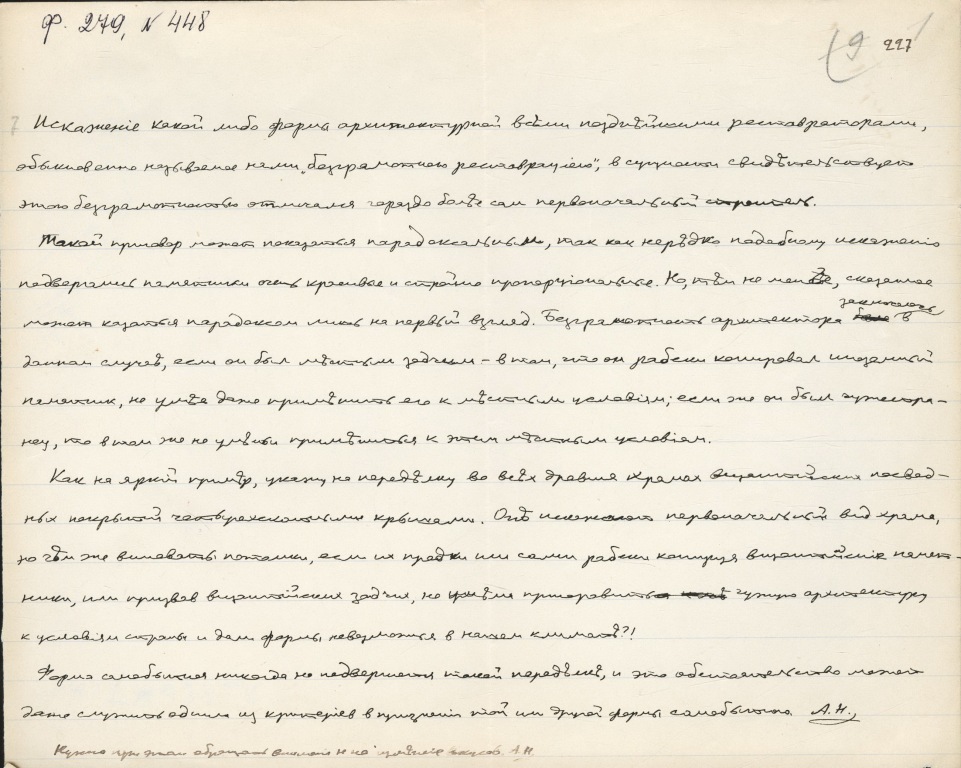 Ф. 279, N 448
9 227
7 Искаженіе какой либо формы архитектурной всѣми позднѣйшими реставраторами,
обыкновенно называемое нами „безграмотною реставраціею“, в сущности свидѣтельствует
этою безграмотностью отличался гораздо болѣе сам первоначальный строитель.
Такой приговор может показаться парадоксальным, так как нерѣдко подобному искаженію
подвергались памятники очень красивые и стройно пропорціональные. Но, тѣм не менѣе, сказанное
может казаться парадоксом лишь на первый взгляд. Безграмотность архитектора заключалась в
данном случаѣ, если он был мѣстным зодчим – в том, что он рабски копировал иноземный
памятник, не умѣя даже примѣнить его к мѣстным условіям; если же он был чужестра-
нец, то в том же неумѣньи примѣниться к этим мѣстным условіям.
Как на яркій примѣр, укажу на передѣлку во всѣх древних храмах византійских посвод-
ных покрытій четырехскатными крышами. Онѣ искажают первоначальный вид храма,
но чѣм же виноваты потомки, если их предки или сами рабски копируя византійскіе памят-
ники, или призвав византійских зодчих, не умѣли приноровить чужую архитектуру
к условіям страны и дали формы невозможныя в нашем климатѣ?!
Форма самобытная никогда не подвергается такой передѣлкѣ, и это обстоятельство может
даже служить одним из критеріев в признаніи той или другой формы самобытною. А.Н.
Нужно при этом обращать вниманіе и на вкусов. А.Н.